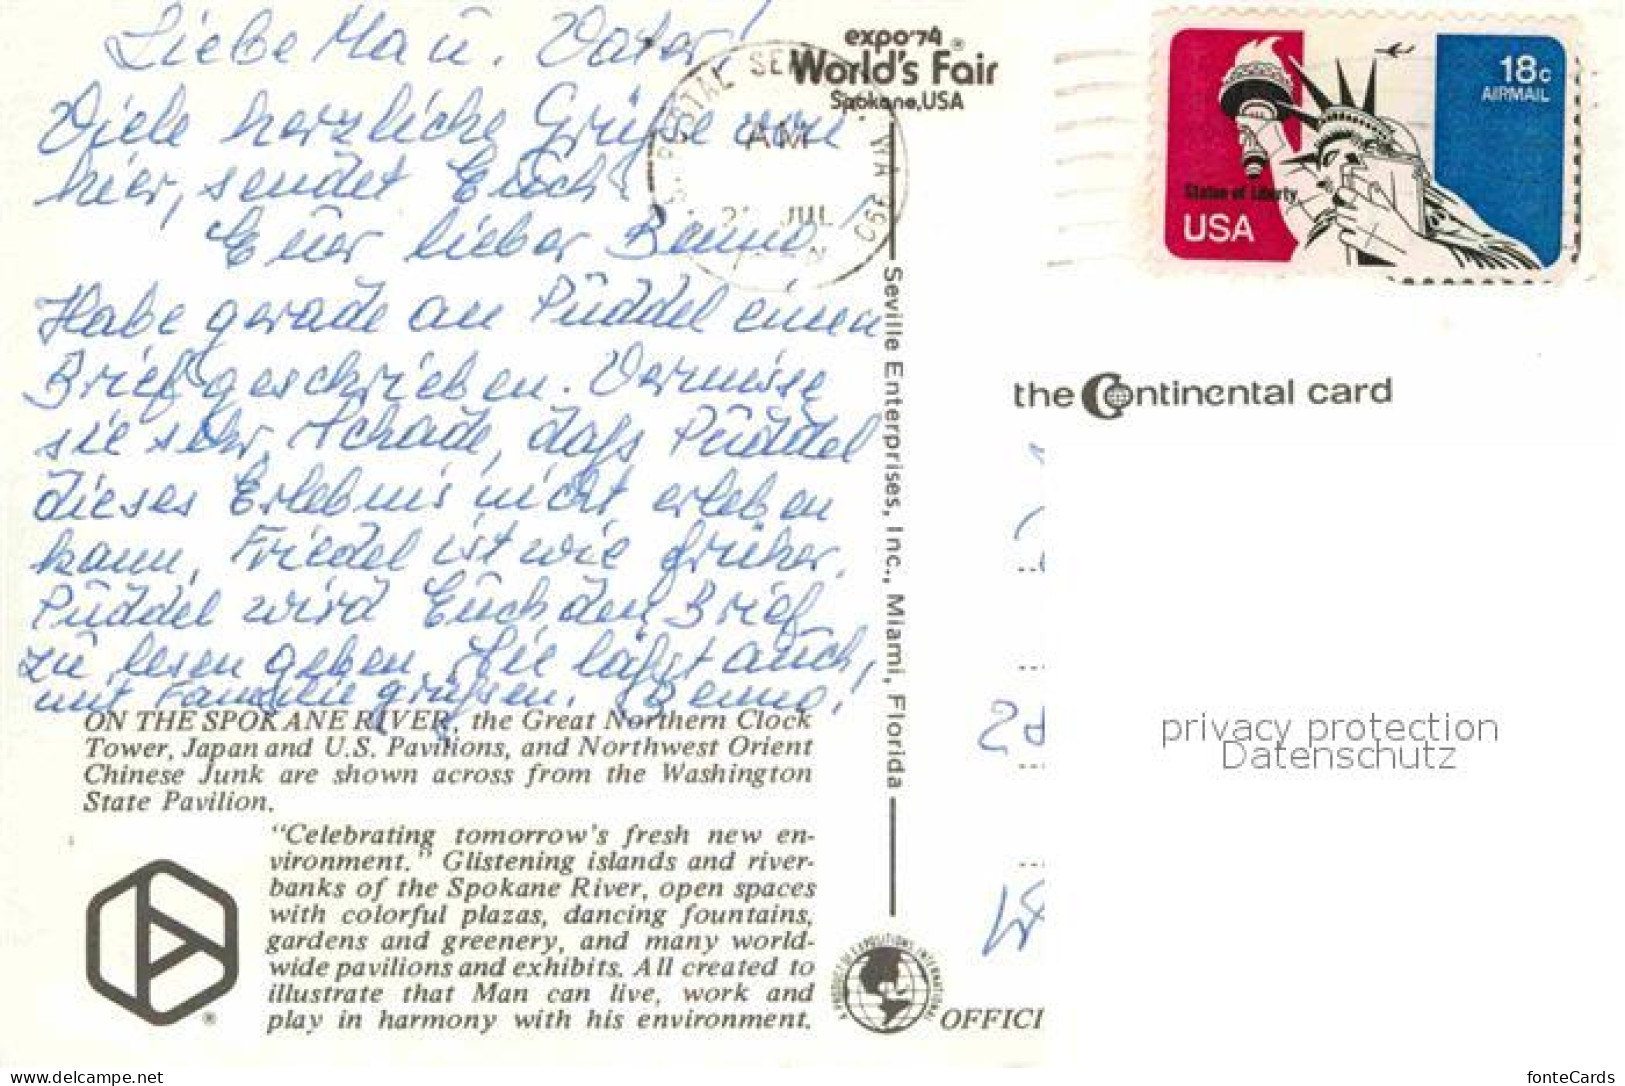 Liebe Ma u. Vater!
Viele herzliche Grüße von
hier, sendet Euch
Euer lieber Benno!
Habe gerade an Püddel einen
Brief geschrieben. Vermisse
sie sehr, schade, daß Püddel
dieses Erlebnis nicht erleben
kann. Friedel ist wie früher.
Püddel wird Euch den Brief
zu lesen geben. Sie läßt auch,
mit Familie grüßen. Benno!
expo'74 ®
World's Fair
Spokane, USA
POSTAL SER WA 990
AM
JUL
18c
AIRMAIL
Statue of Liberty
USA
the Continental card
Seville Enterprises, Inc., Miami, Florida
privacy protection
Datenschutz
ON THE SPOKANE RIVER, the Great Northern Clock
Tower, Japan and U.S. Pavilions, and Northwest Orient
Chinese Junk are shown across from the Washington
State Pavilion.
"Celebrating tomorrow's fresh new en-
vironment." Glistening islands and river-
banks of the Spokane River, open spaces
with colorful plazas, dancing fountains,
gardens and greenery, and many world-
wide pavilions and exhibits. All created to
illustrate that Man can live, work and
play in harmony with his environment.
®
A PRODUCT OF EXPOSITIONS INTERNATIONAL
OFFICI
www.delcampe.net
fonteCards